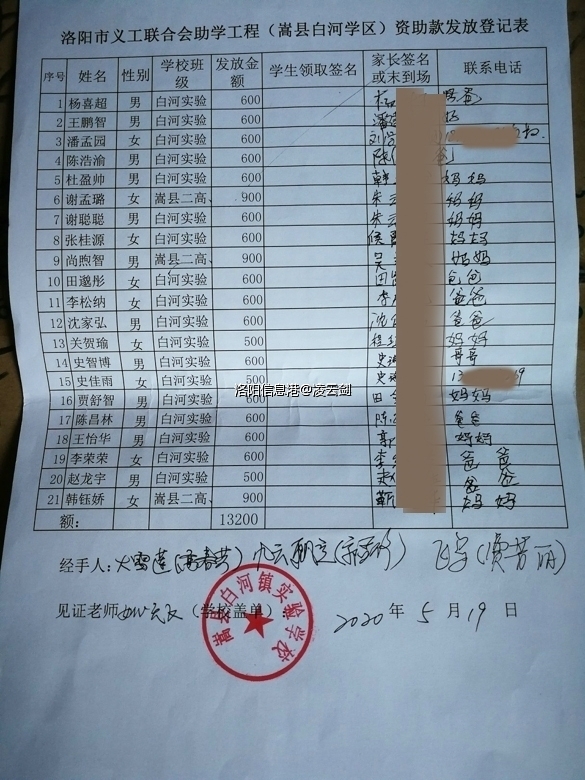 洛阳市义工联合会助学工程（嵩县白河学区）资助款发放登记表
序号 姓名 性别 学校班级 发放金额 学生领取签名 家长签名或未到场 联系电话
1 杨喜超 男 白河实验 600 爸爸
2 王鹏智 男 白河实验 600
3 潘孟园 女 白河实验 600
4 陈浩渝 男 白河实验 600 爸
5 杜盈帅 男 白河实验 600 妈妈
6 谢孟璐 女 嵩县二高、 900 朱 妈妈
7 谢聪聪 男 白河实验 600 朱 妈妈
8 张桂源 女 白河实验 600 妈妈
9 尚煦智 男 嵩县二高、 900 吴 妈妈
10 田邈彤 女 白河实验 600 田 爸爸
11 李松纳 女 白河实验 600 李 爸爸
12 沈家弘 男 白河实验 600 沈 爸爸
13 关贺瑜 女 白河实验 500 妈妈
14 史智博 男 白河实验 600 史 哥哥
15 史佳雨 女 白河实验 500 史
洛阳信息港@凌云剑
16 贾舒智 男 白河实验 600 田 妈妈
17 陈昌林 男 白河实验 600 陈 爸爸
18 王怡华 男 白河实验 600 郭 妈妈
19 李荣荣 女 白河实验 600 李 爸爸
20 赵龙宇 男 白河实验 500 赵 爸爸
21 韩钰娇 女 嵩县二高、 900 靳 妈妈
额： 13200
经手人：火雪莲
见证老师 （学校盖单）： 2020 年 5 月 19 日
嵩县白河镇实验学校